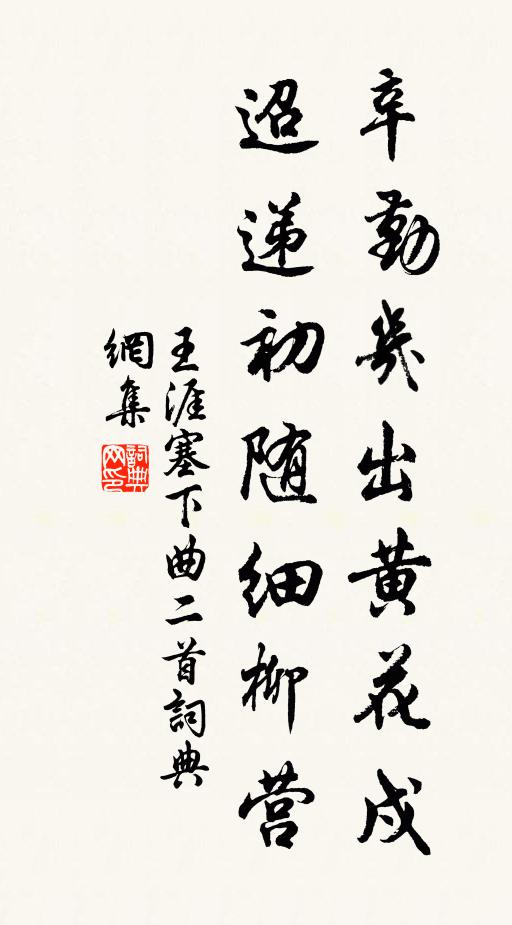 辛勤幾出黄花戍
迢递初随细柳营
王涯塞下曲二首詞典
網集
詞典网印